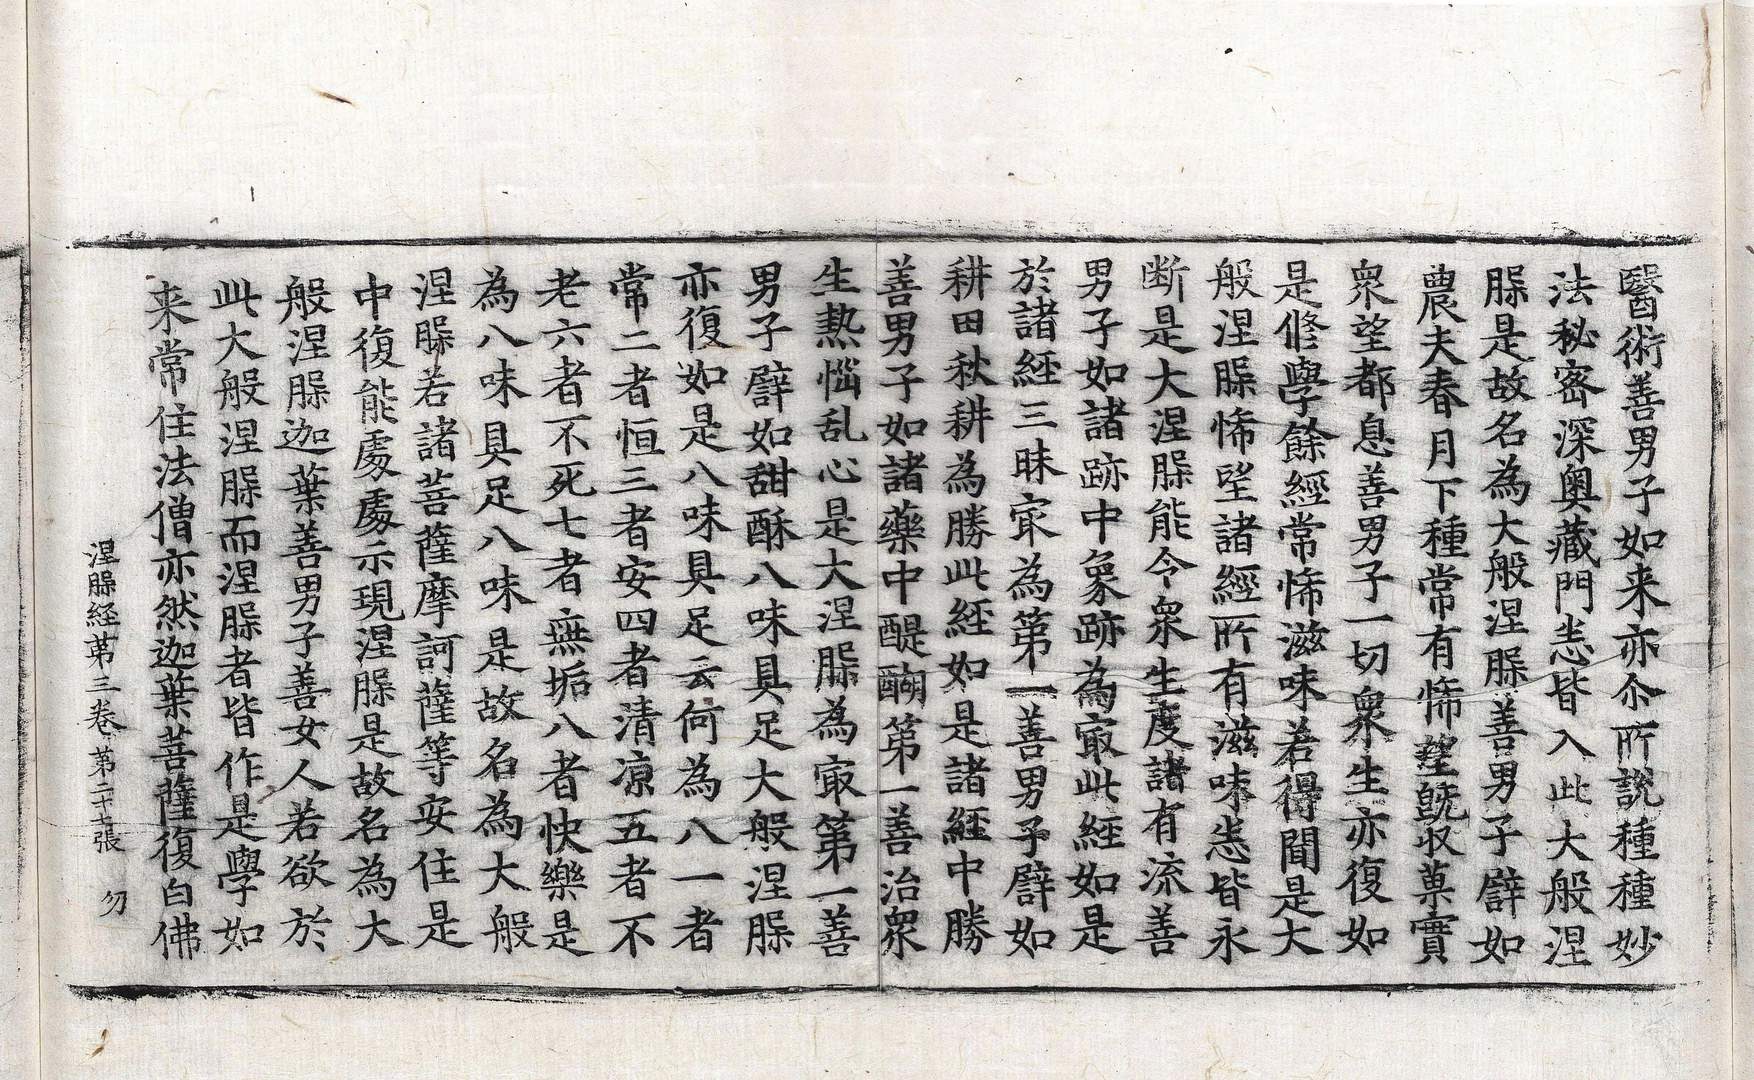 醫術善男子如来亦尒所說種種妙
法秘密深奧藏門悉皆入此大般涅
槃是故名為大般涅槃善男子譬如
農夫春月下種常有悕望旣収菓實
衆望都息善男子一切衆生亦復如
是修學餘經常悕滋味若得聞是大
般涅槃悕望諸經所有滋味悉皆永
断是大涅槃能令衆生度諸有流善
男子如諸跡中象跡為㝡此經如是
於諸經三昧㝡為第一善男子譬如
耕田秋耕為勝此經如是諸經中勝
善男子如諸藥中醍醐第一善治衆
生熱惱乱心是大涅槃為㝡第一善
男子譬如甜酥八味具足大般涅槃
亦復如是八味具足云何為八一者
常二者恒三者安四者清凉五者不
老六者不死七者無垢八者快樂是
為八味具足八味是故名為大般
涅槃若諸菩薩摩訶薩等安住是
中復能處處示現涅槃是故名為大
般涅槃迦葉善男子善女人若欲於
此大般涅槃而涅槃者皆作是學如
来常住法僧亦然迦葉菩薩復白佛
涅槃経第三卷 第二十七張 勿